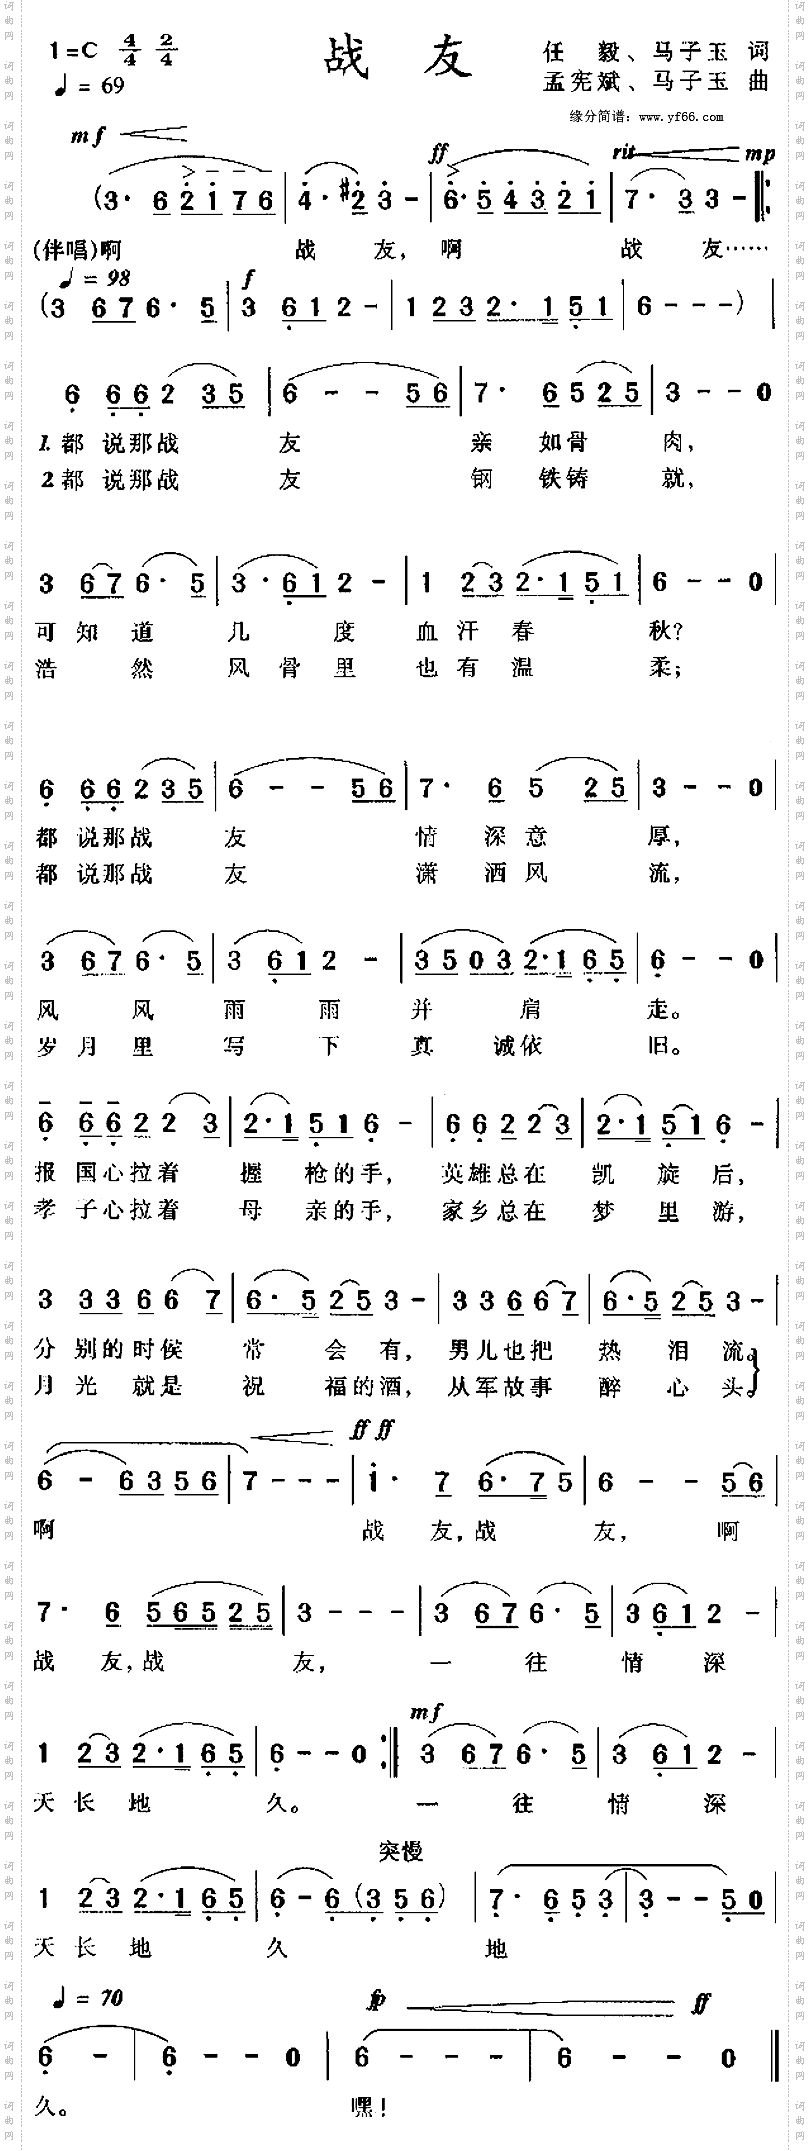 1=C 4/4 2/4 战 友 任 毅、马子玉 词
♩= 69 孟宪斌、马子玉 曲
缘分简谱：www.yf66.com
mf ff rit mp
(3· 6 2 1 7 6 | 4· #2 3 - | 6· 5 4 3 2 1 | 7· 3 3 - ‖:
(伴唱)啊 战 友，啊 战 友……
♩= 98 f
(3 6 7 6· 5 | 3 6 1 2 - | 1 2 3 2· 1 5 1 | 6 - - -) |
6 6 6 2 3 5 | 6 - - 5 6 | 7· 6 5 2 5 | 3 - - 0
1. 都 说那战 友 亲 如骨 肉，
2 都 说那战 友 钢 铁铸 就，
3 6 7 6· 5 | 3· 6 1 2 - | 1 2 3 2· 1 5 1 | 6 - - 0 |
可 知 道 几 度 血 汗 春 秋？
浩 然 风 骨 里 也 有 温 柔；
6 6 6 2 3 5 | 6 - - 5 6 | 7· 6 5 2 5 | 3 - - 0 |
都 说那战 友 情 深 意 厚，
都 说那战 友 潇 洒 风 流，
3 6 7 6· 5 | 3 6 1 2 - | 3 5 0 3 2· 1 6 5 | 6 - - 0 |
风 风 雨 雨 并 肩 走。
岁 月 里 写 下 真 诚依 旧。
6 6 6 2 2 3 | 2· 1 5 1 6 - | 6 6 2 2 3 | 2· 1 5 1 6 - |
报 国心拉着 握 枪的手，英雄总在 凯 旋 后，
孝 子心拉着 母 亲的手，家乡总在 梦 里 游，
3 3 3 6 6 7 | 6· 5 2 5 3 - | 3 3 6 6 7 | 6· 5 2 5 3 - |
分 别的时侯 常 会 有，男儿也把 热 泪 流。
月 光 就是 祝 福的酒，从军故事 醉 心 头。
ff ff
6 - 6 3 5 6 | 7 - - - | 1· 7 6· 7 5 | 6 - - 5 6 |
啊 战 友，战 友，啊
7· 6 5 6 5 2 5 | 3 - - - | 3 6 7 6· 5 | 3 6 1 2 - |
战 友，战 友，一 往 情 深
mf
1 2 3 2· 1 6 5 | 6 - - 0 :‖ 3 6 7 6· 5 | 3 6 1 2 - |
天 长 地 久。 一 往 情 深
突慢
1 2 3 2· 1 6 5 | 6 - 6 (3 5 6) | 7· 6 5 3 | 3 - - 5 0 |
天 长 地 久 地
♩= 70 fp ff
6 - | 6 - - 0 | 6 - - - | 6 - - 0 ‖
久。 嘿！